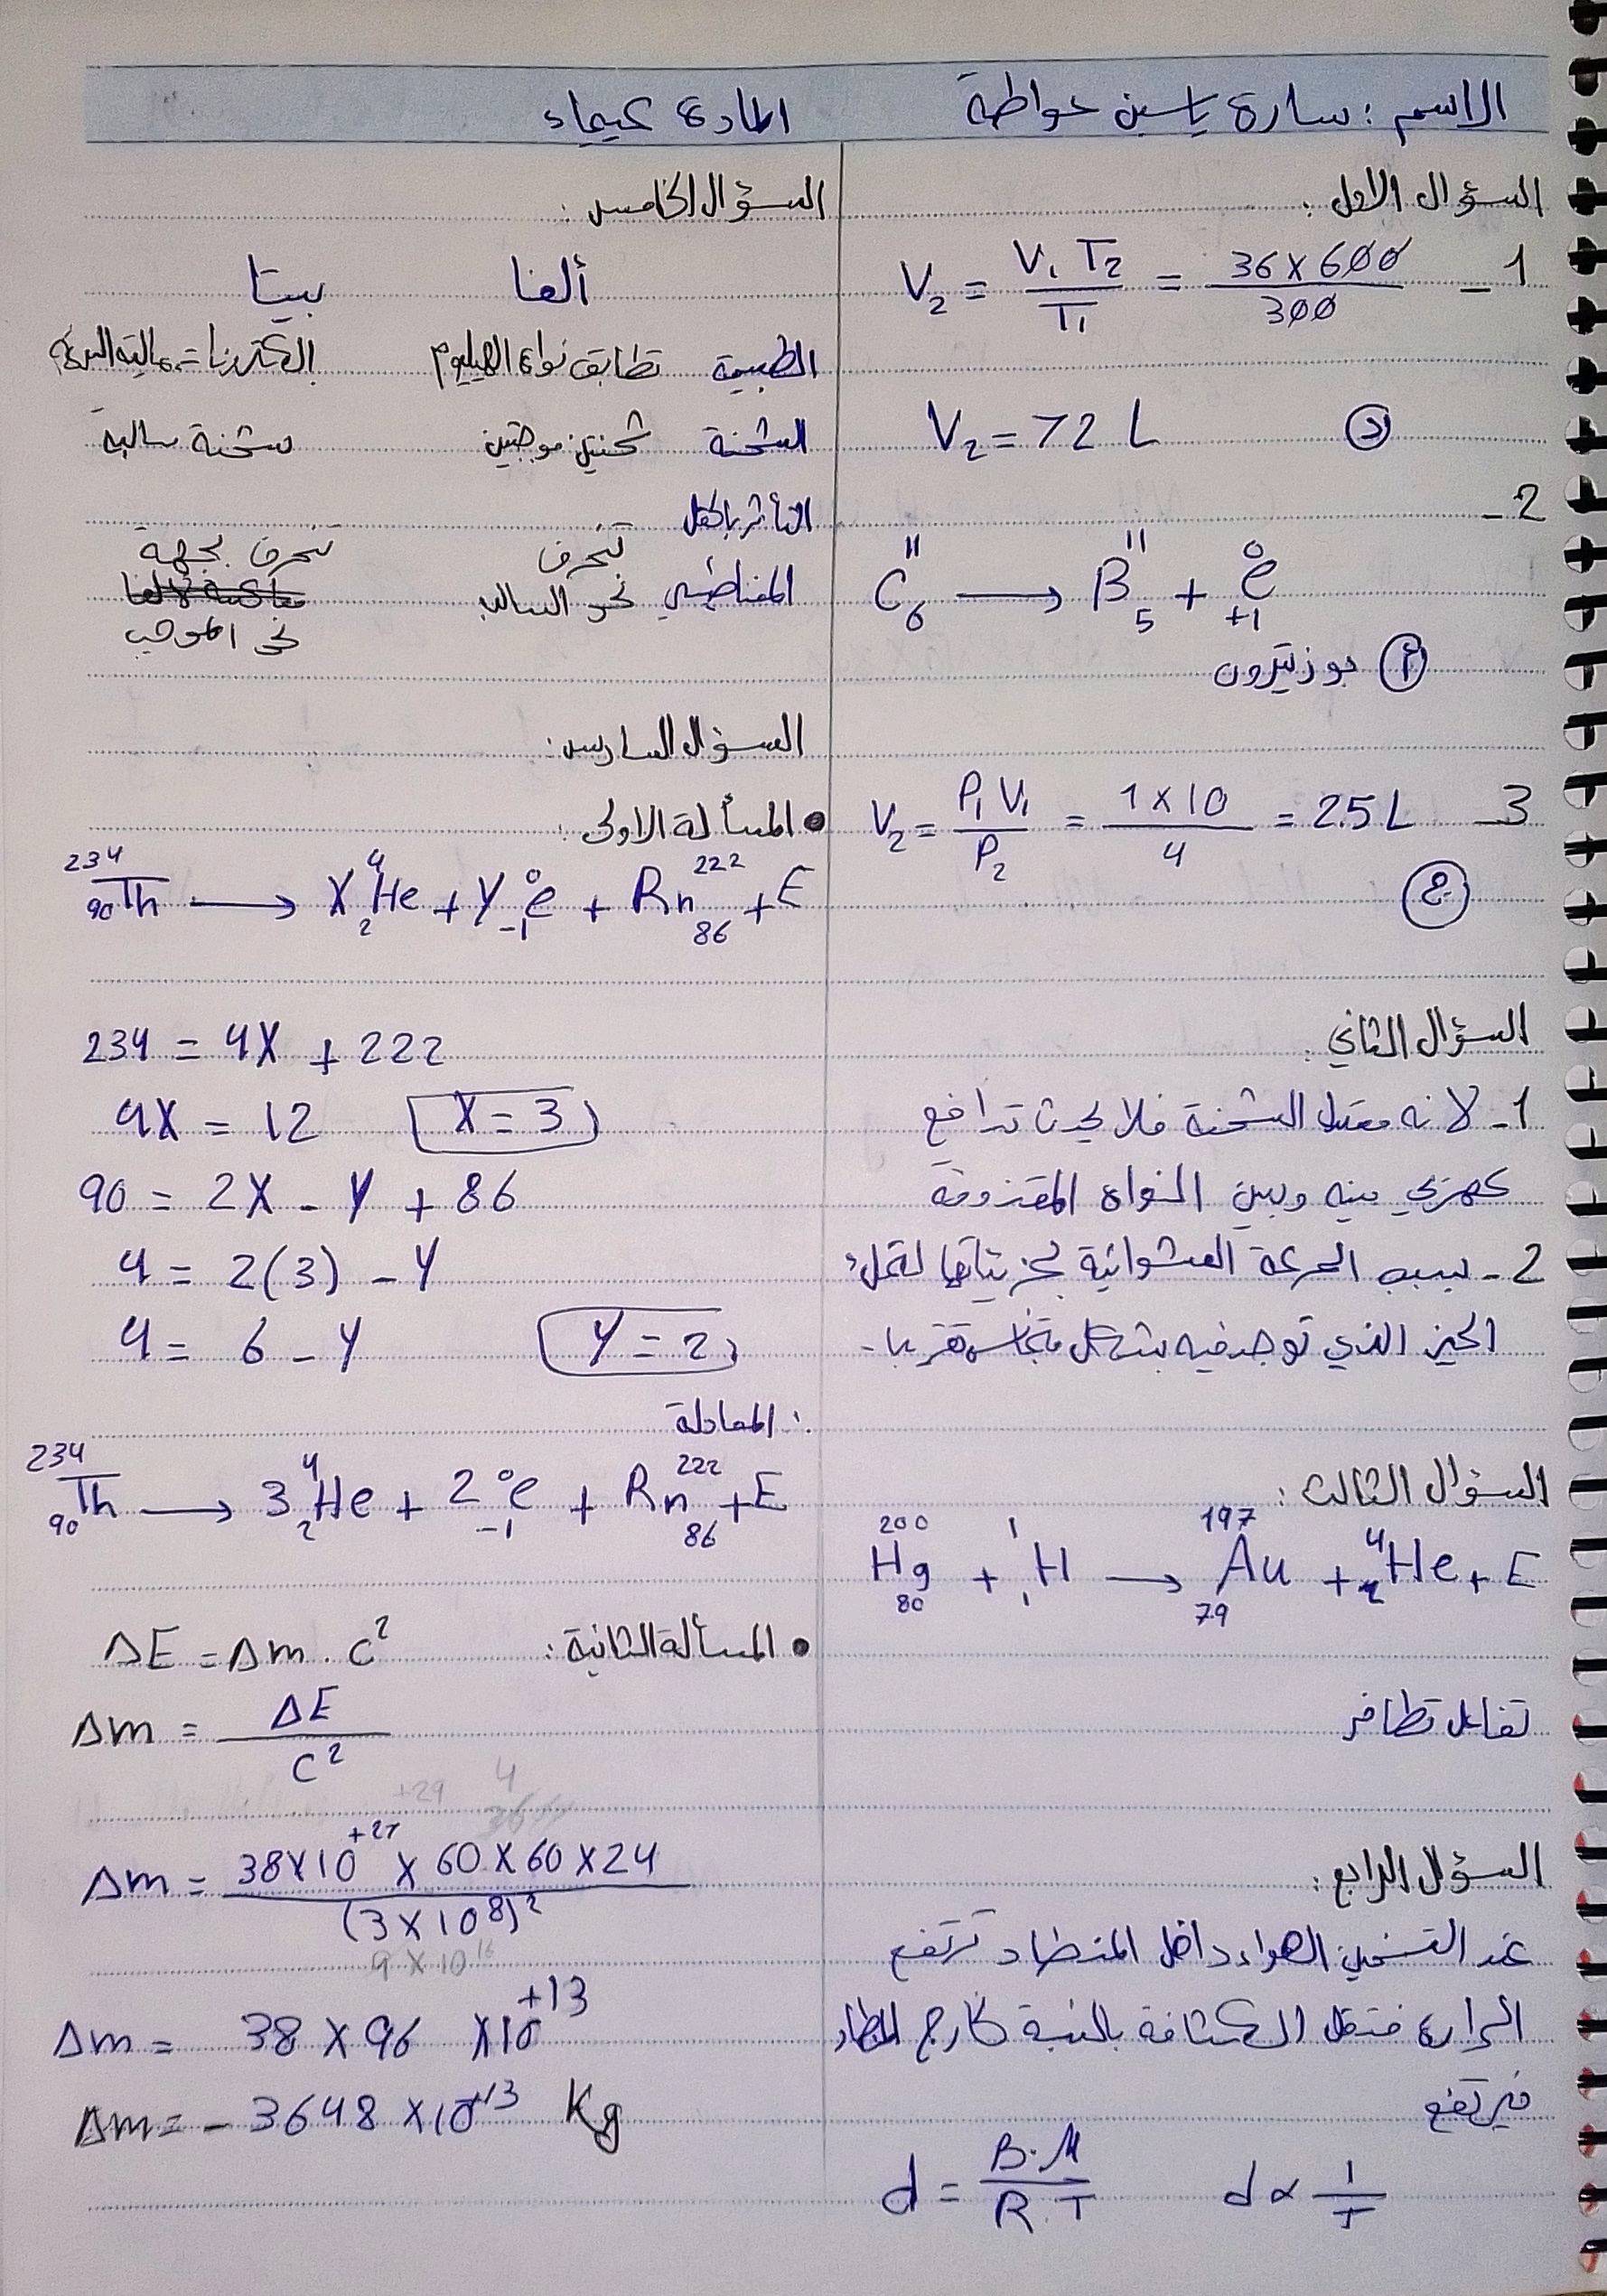 الاسم : سارة ياسين حواطة
المادة كيمياء
السؤال الاول :
1 - V₂ = V₁ T₂ / T₁ = 36 × 600 / 300
V₂ = 72 L (د)
2 -
¹¹C₆ → B¹¹₅ + ⁰e₊₁
(أ) بوزيترون
3 - V₂ = P₁ V₁ / P₂ = 1 × 10 / 4 = 2.5 L
السؤال الثاني :
1 - لانه معتدل الشحنة فلا يحدث تدافع
كهربي بينه وبين النواة المقذوفة
2 - بسبب الحركة العشوائية لجزيئاتها لتملء
الحيز الذي توجد فيه بشكل متجانس تقريبا -
السؤال الثالث :
²⁰⁰₈₀Hg + ¹₁H → ¹⁹⁷₇₉Au + ⁴₂He + E
تفاعل تطافر
السؤال الرابع :
عند التسخين الهواء داخل المنطاد ترتفع
الحرارة فتقل الكثافة بالنسبة لخارج المنطاد
فيرتفع
d = B . M / R . T d ∝ 1 / T
السؤال الخامس :
ألفا بيتا
الطبيعة تطابق نواة الهيليوم الكترونات عالية السرعة
الشحنة شحنتين موجبتين شحنة سالبة
التأثر بالحقل
المغناطيسي تنحرف نحو السالب تنحرف بجهة
معاكسة لالفا
نحو الموجب
السؤال السادس :
• المسألة الاولى :
²³⁴₉₀Th → X ⁴₂He + Y ⁰₋₁e + Rn²²²₈₆ + E
234 = 4X + 222
4X = 12 X = 3
90 = 2X - Y + 86
4 = 2(3) - Y
4 = 6 - Y Y = 2
المعادلة :
²³⁴₉₀Th → 3 ⁴₂He + 2 ⁰₋₁e + Rn²²²₈₆ + E
• المسألة الثانية : ΔE = Δm . C²
Δm = ΔE / C²
+29 4
Δm = 38 × 10⁺²⁷ × 60 × 60 × 24 / (3 × 10⁸)²
9 × 10¹⁶
Δm = 38 × 96 × 10⁺¹³
Δm = - 3648 × 10⁺¹³ Kg